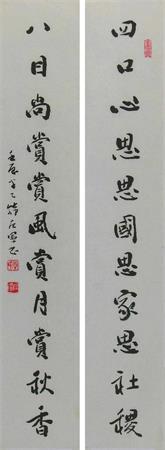 四口心思思國思家思社稷
八目尚賞賞風賞月賞秋香